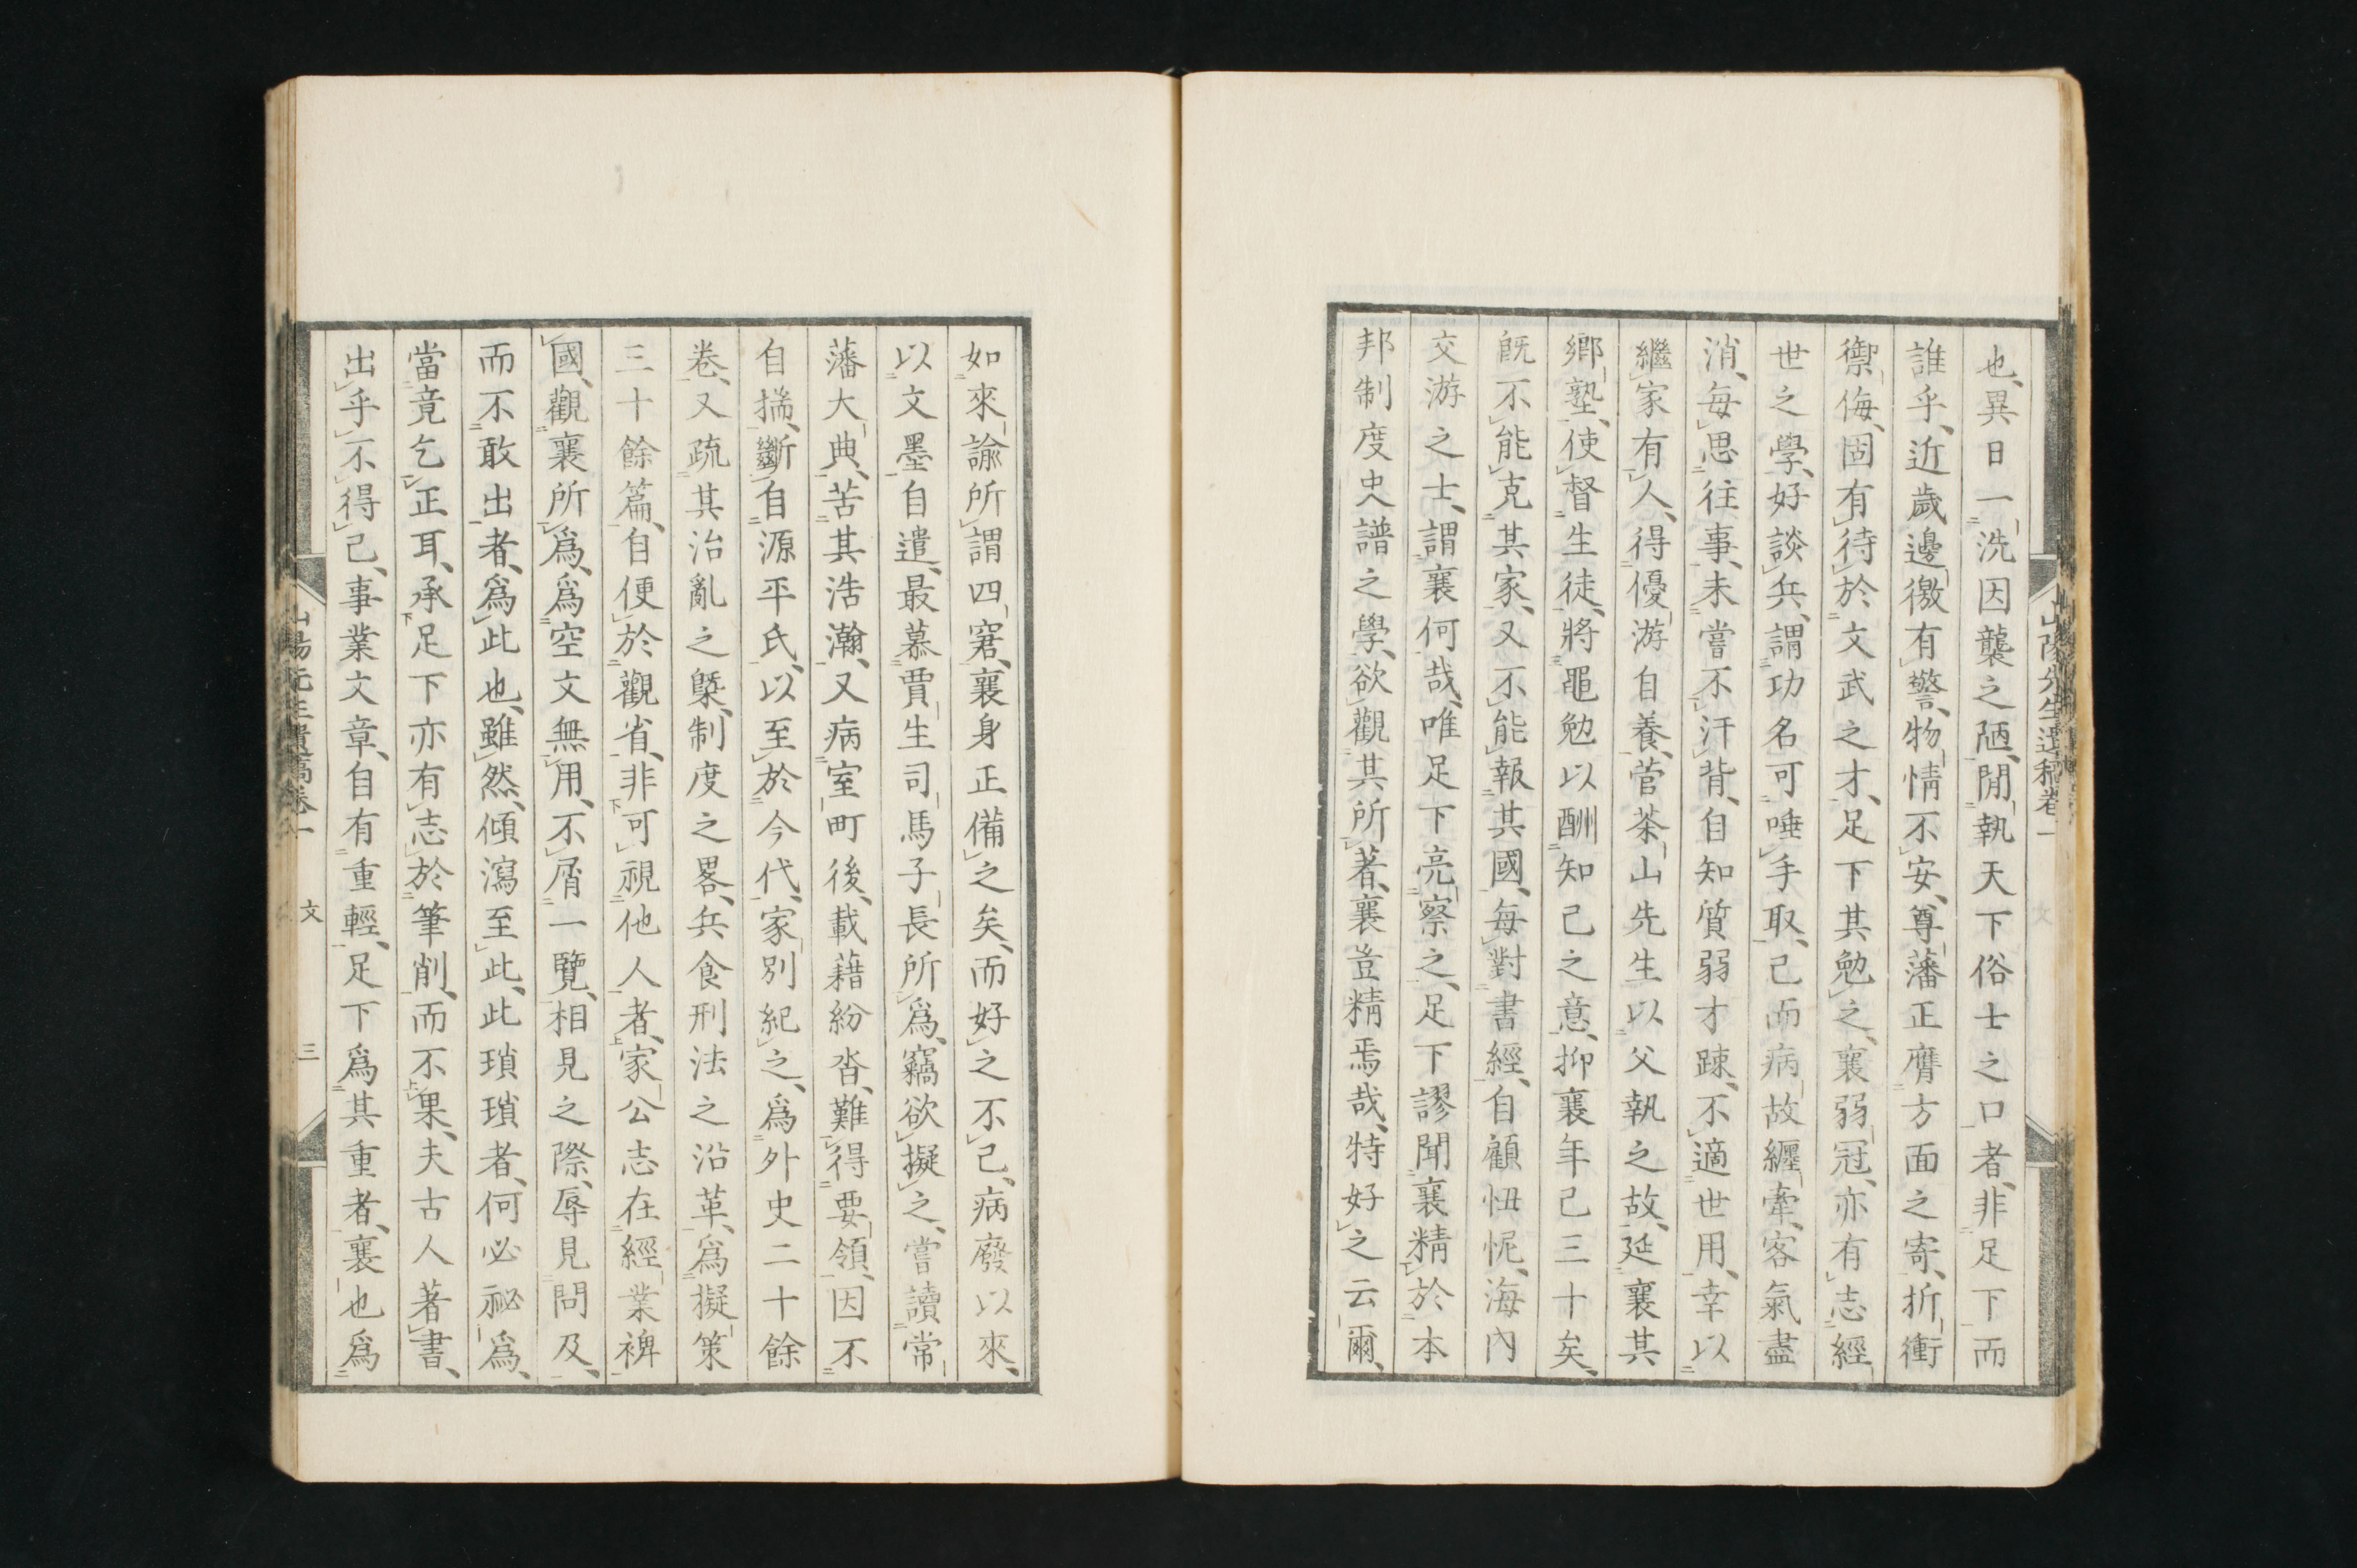 也、異日一洗因襲之陋、閒執天下俗士之口者、非足下而
誰乎、近歲邊徼有警、物情不安、尊藩正膺方面之寄、折衝
禦侮、固有待於文武之才、足下其勉之、襄弱冠、亦有志經
世之學、好談兵、謂功名可唾手取、已而病故纏牽、客氣盡
消、每思往事、未嘗不汗背、自知質弱才踈、不適世用、幸以
繼家有人、得優游自養、菅茶山先生以父執之故、延襄其
鄉塾、使督生徒、將黽勉以酬知己之意、抑襄年已三十矣、
既不能克其家、又不能報其國、每對書經、自顧忸怩、海內
交游之士、謂襄何哉、唯足下亮察之、足下謬聞襄精於本
邦制度史譜之學、欲觀其所著、襄豈精焉哉、特好之云爾、
山陽先生遺稿卷一
如來諭所謂四窘、襄身正備之矣、而好之不已、病廢以來、
以文墨自遣、最慕賈生司馬子長所爲、竊欲擬之、嘗讀常
藩大典、苦其浩瀚、又病室町後、載藉紛沓、難得要領、因不
自揣、斷自源平氏、以至於今代、家別紀之、爲外史二十餘
卷、又疏其治亂之槩、制度之畧、兵食刑法之沿革、爲擬策
三十餘篇、自便於觀省、非可視他人者、家公志在經業裨
國、觀襄所爲、爲空文無用、不屑一覽、相見之際、辱見問及、
而不敢出者、爲此也、雖然、傾瀉至此、此瑣瑣者、何必祕爲、
當竟乞正耳、承足下亦有志於筆削、而不果、夫古人著書、
出乎不得已、事業文章、自有重輕、足下爲其重者、襄也爲
山陽先生遺稿卷一 文 三